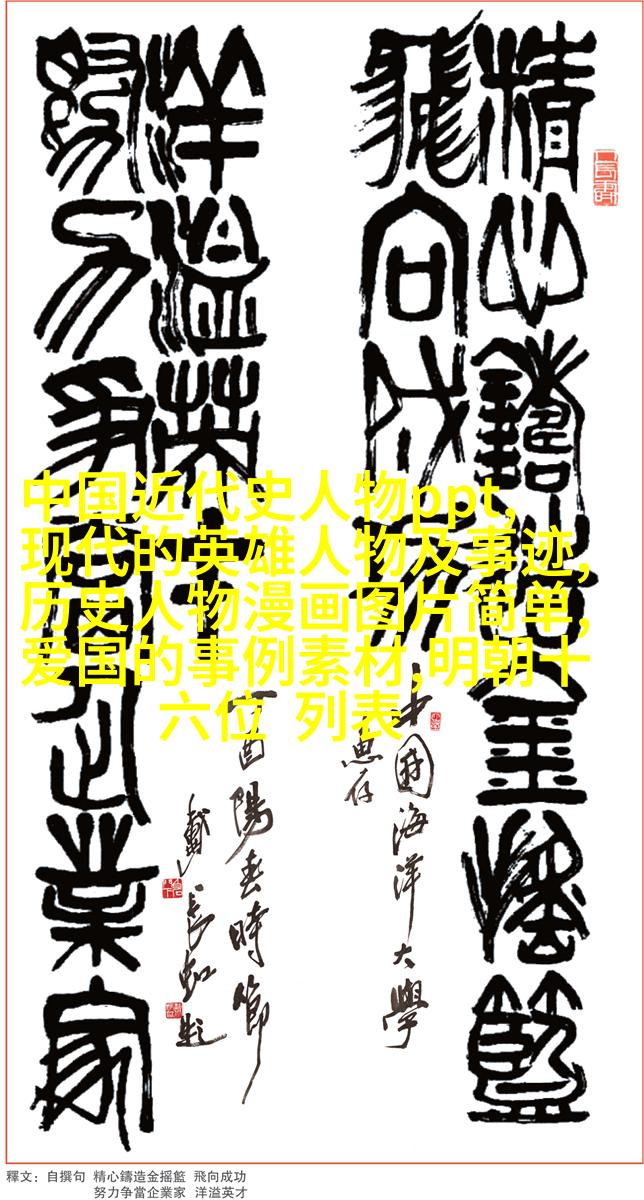 精心鑄造金摇籃
飛向成功
中國海洋大學
惠存
努力争當企業家
洋溢英才
丁酉陽春時節
戴長虹題
中国近代史人物ppt,
现代的英雄人物及事迹,
历史人物漫画图片简单,
爱国的事例素材,明朝十
六位 列表
釋文：自撰句 精心鑄造金摇籃 飛向成功
努力争當企業家 洋溢英才